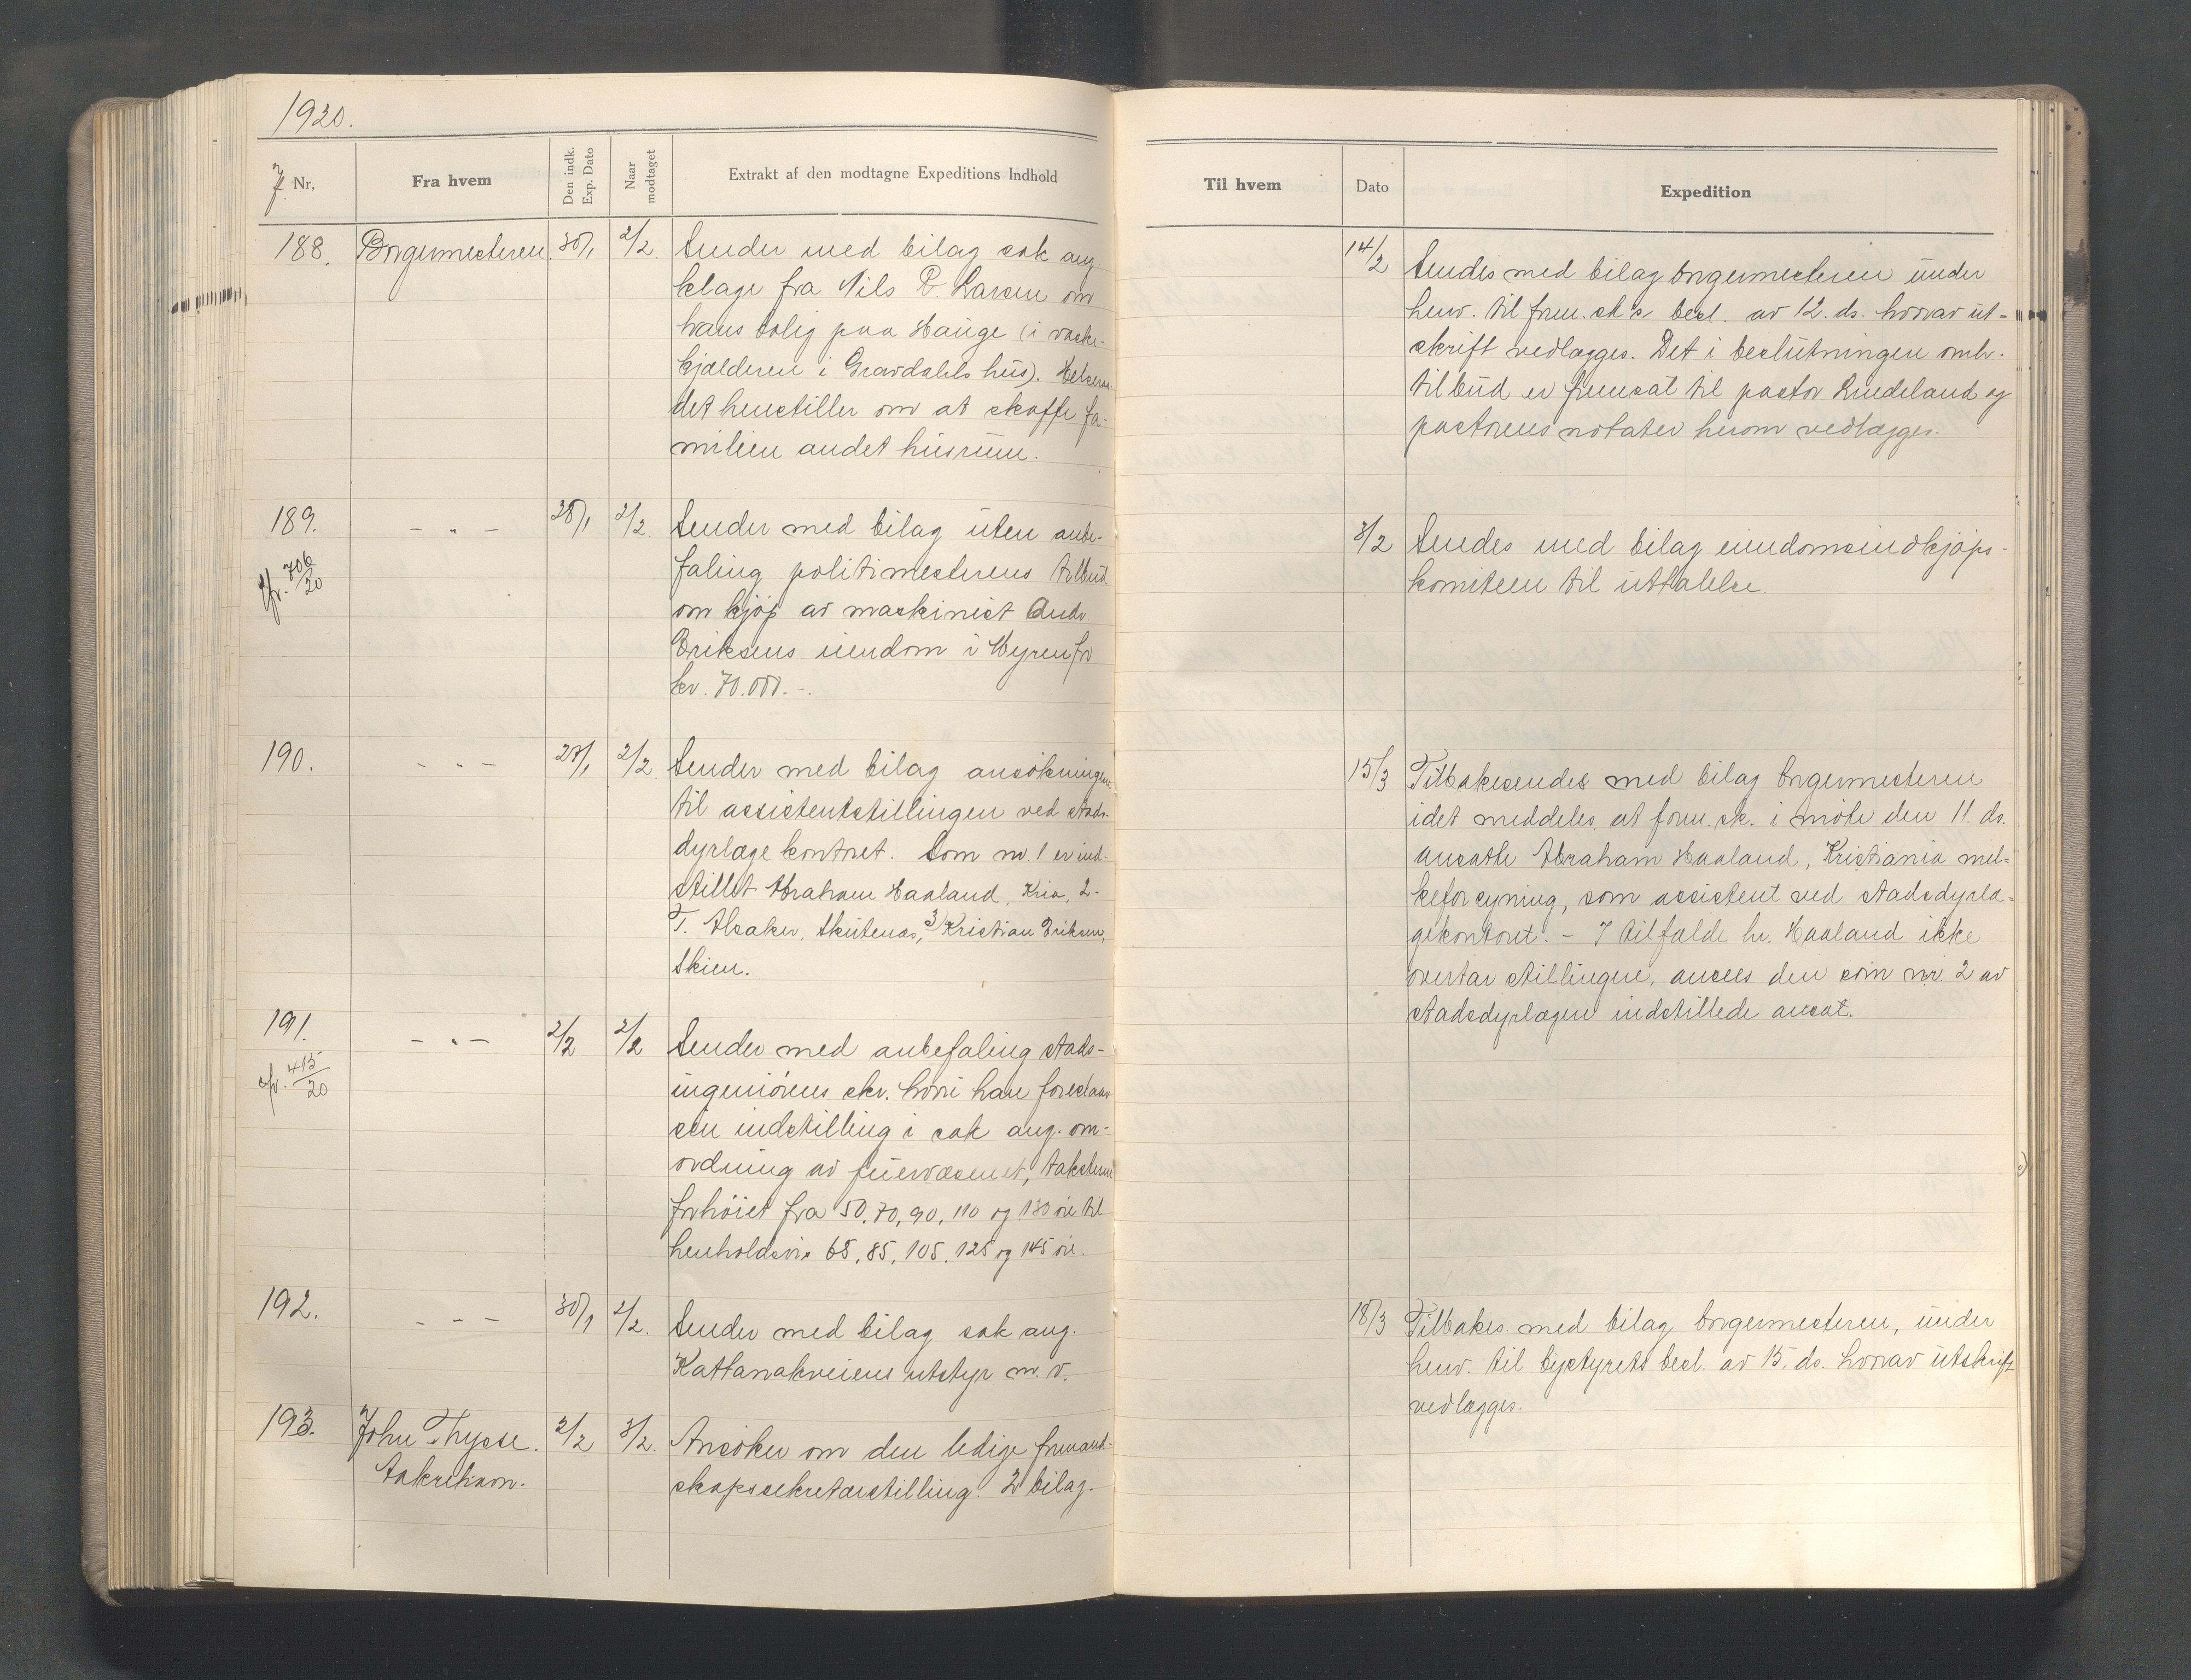 1920.
J. Nr,
Fra hvem
Den indk. Exp. Dato
Naar modtaget
Extrakt af den modtagne Expeditions Indhold
188.
Borgermesteren
30/1
2/2.
Sender med bilag sak ang.
klage fra Nils P. Larsen om
hans bolig paa Hauge (i vaske-
kjælderen i Gravdahls hus). Helseraa-
det henstiller om at skaffe fa-
milien andet husrum.
189.
cfr. 706/20
- " -
28/1
2/2.
Sender med bilag uten anbe-
faling politimesterens tilbud
om kjøp av maskinist Andr.
Eriksens eiendom i Myren for
kr. 70.000.-.
190.
- " -
27/1
2/2
Sender med bilag ansøkningene
til assistentstillingen ved stads-
dyrlægekontoret. Som nr. 1 er ind-
stillet Abraham Haaland, Kria, 2-
T. Alsaker, Skutenæs, 3) Kristian Eriksen,
Skien.
191.
cfr. 415/20
- " -
2/2
2/2
Sender med anbefaling stads-
ingeniørens skr. hvori han foreslaar
sin indstilling i sak ang. om-
ordning av feiervæsenet, taksterne
forhøiet fra 50, 70, 90, 110 og 130 øre til
henholdsvis 65, 85, 105, 125 og 145 øre.
192.
- " -
30/1
2/2.
Sender med bilag sak ang.
Kattanakveiens utstyr m. v.
193.
John Thysse.
Aakrehavn.
2/2
3/2.
Ansøker om den ledige formand-
skapssekretærstilling. 2 bilag.
Til hvem
Dato
Expedition
14/2
Sendes med bilag borgermesteren under
henv. til form. sk's besl. av 12. ds. hvorav ut-
skrift vedlægges. Det i beslutningen omh.
tilbud er fremsat til pastor Lindeland og
pastorens notater herom vedlægges.
3/2
Sendes med bilag eiendomsindkjøps-
komiteen til uttalelse.
15/3
Tilbakesendes med bilag borgermesteren
idet meddeles at form. sk. i møte den 11. ds.
ansatte Abraham Haaland, Kristiania mel-
keforsyning, som assistent ved stadsdyrlæ-
gekontoret. - I tilfælde hr. Haaland ikke
overtar stillingen, ansees den som nr. 2 av
stadsdyrlægen indstillede ansat.
18/3
Tilbakes. med bilag borgermesteren, under
henv. til bystyrets besl. av 15. ds. hvorav utskrift
vedlægges.